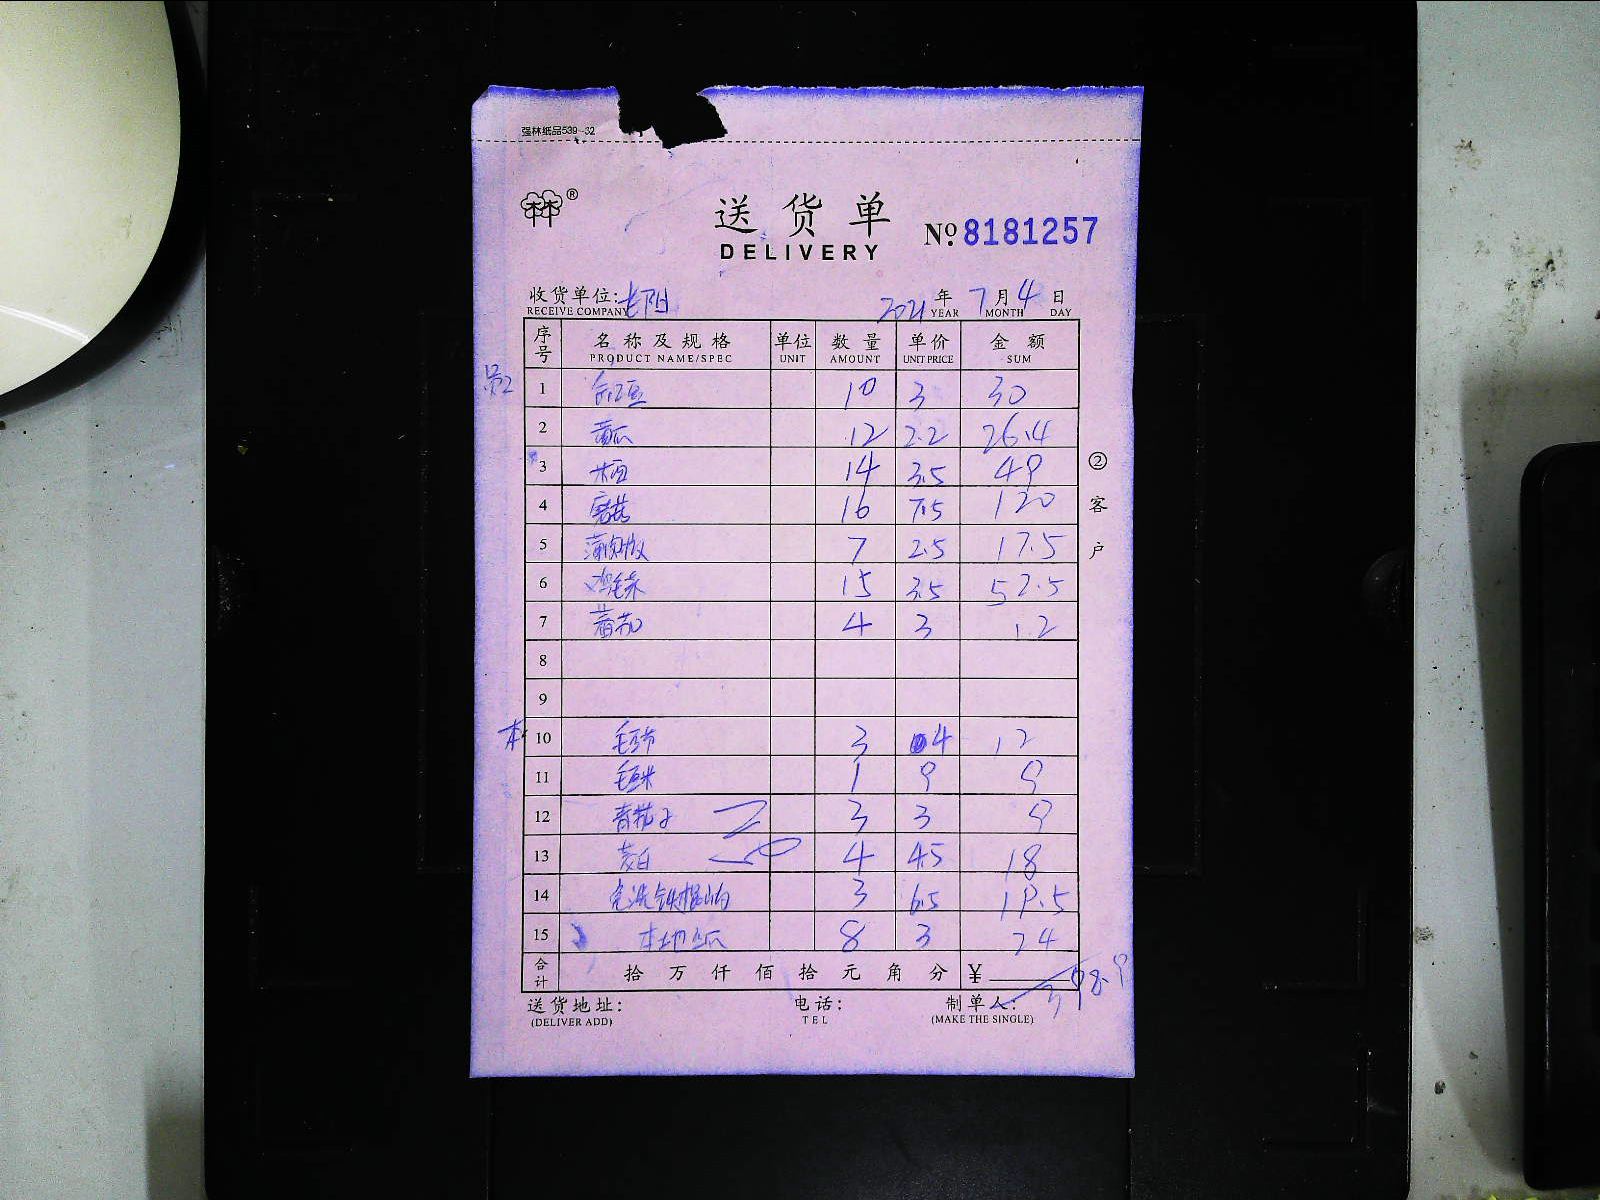 强林纸品539-32
林®
送货单
DELIVERY
No.8181257
收货单位:
RECEIVE COMPANY
2021 年 7 月 4 日
YEAR MONTH DAY
序号 名称及规格 单位 数量 单价 金额
PRODUCT NAME/SPEC UNIT AMOUNT UNIT PRICE SUM
1 10 3 30
2 黄瓜 12 2.2 26.4
3 14 3.5 49
4 蘑菇 16 7.5 120
5 7 2.5 17.5
6 鸡毛菜 15 3.5 52.5
7 蕃茄 4 3 12
8
9
本 10 毛豆节 3 4 12
11 毛豆米 1 9 9
12 青茄子 3 3 9
13 茭白 4 4.5 18
14 3 6.5 19.5
15 本地 8 3 24
合计 拾万仟佰拾元角分 ¥ 398.9
②客户
送货地址: 电话: 制单人:
(DELIVER ADD) TEL (MAKE THE SINGLE)